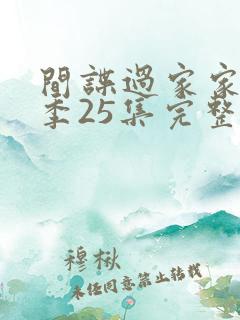 間諜過家家
季25集完整
穆楸
未经同意禁止转载